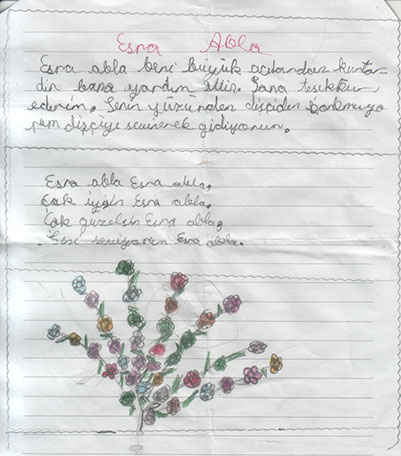 Esra Abla
Esra abla beni büyük acılardan kurtar-
dın bana yardım ettin. Sana teşekkür
ederim. Senin yüzünden dişçiden korkmuyo
rum dişçiye sevinerek gidiyorum.
Esra abla Esra abla,
Çok iyisin Esra abla,
Çok güzelsin Esra abla,
Seni seviyorum Esra abla.